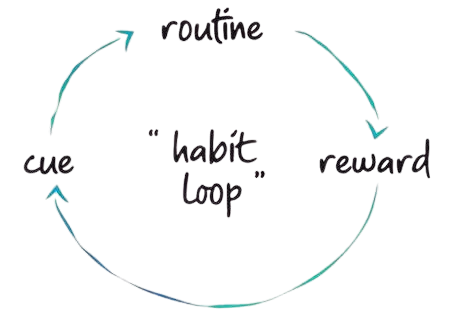 routine
cue
“ habit
loop ”
reward